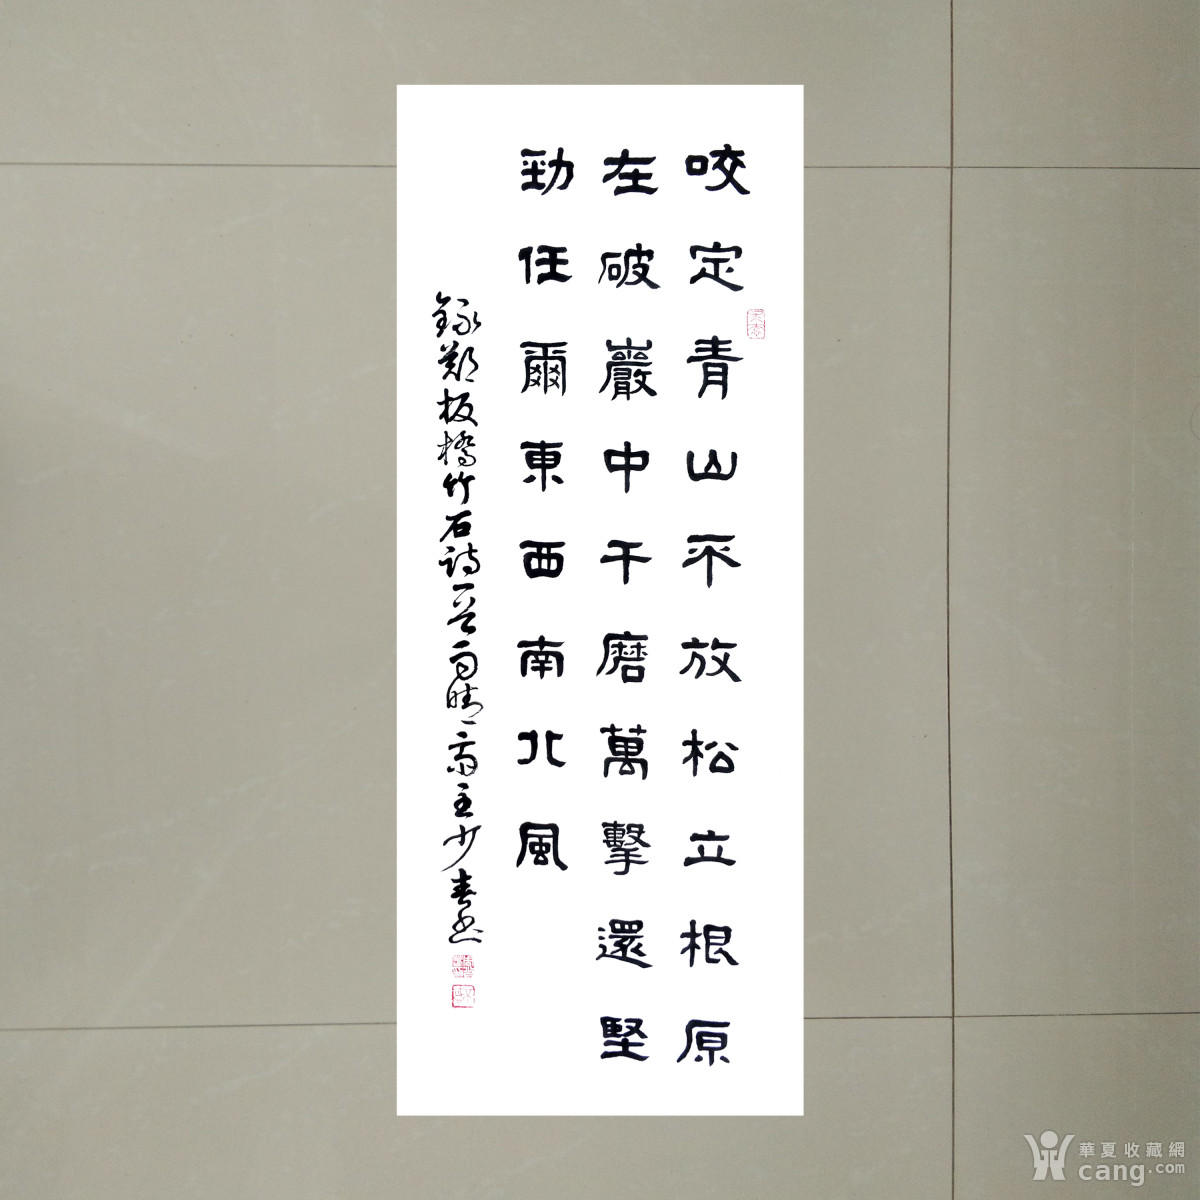 咬定青山不放松立根原
在破巖中千磨萬擊還堅
勁任爾東西南北風
錄鄭板橋竹石詩一首雨晴齋主少春書
華夏收藏網
cang.com